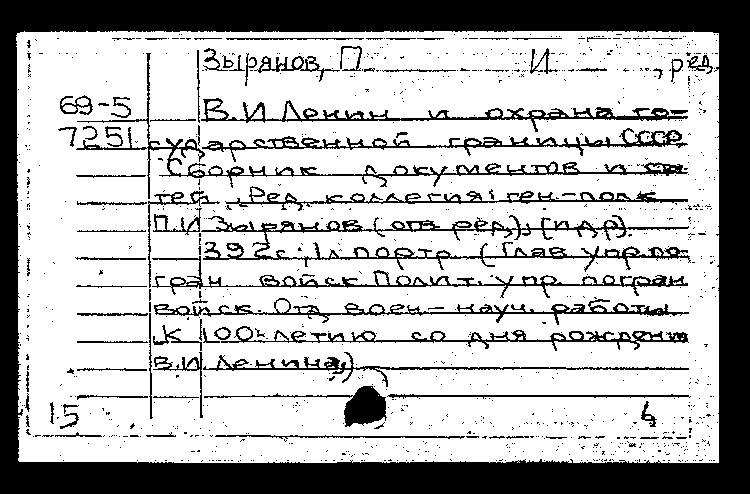 Зырянов, П И , ред.
69-5 В.И Ленин и охрана го-
7251 сударственной границы СССР
Сборник документов и ста
тей „ Ред. коллегия: ген-полк
П.И Зырянов (отв ред), [и др].
392с.; 1л портр. (Глав упр.по-
гран войск Полит. упр погран
войск. Отд воен-науч. работы
„К 100-летию со дня рождения
В.И. Ленина„)
15